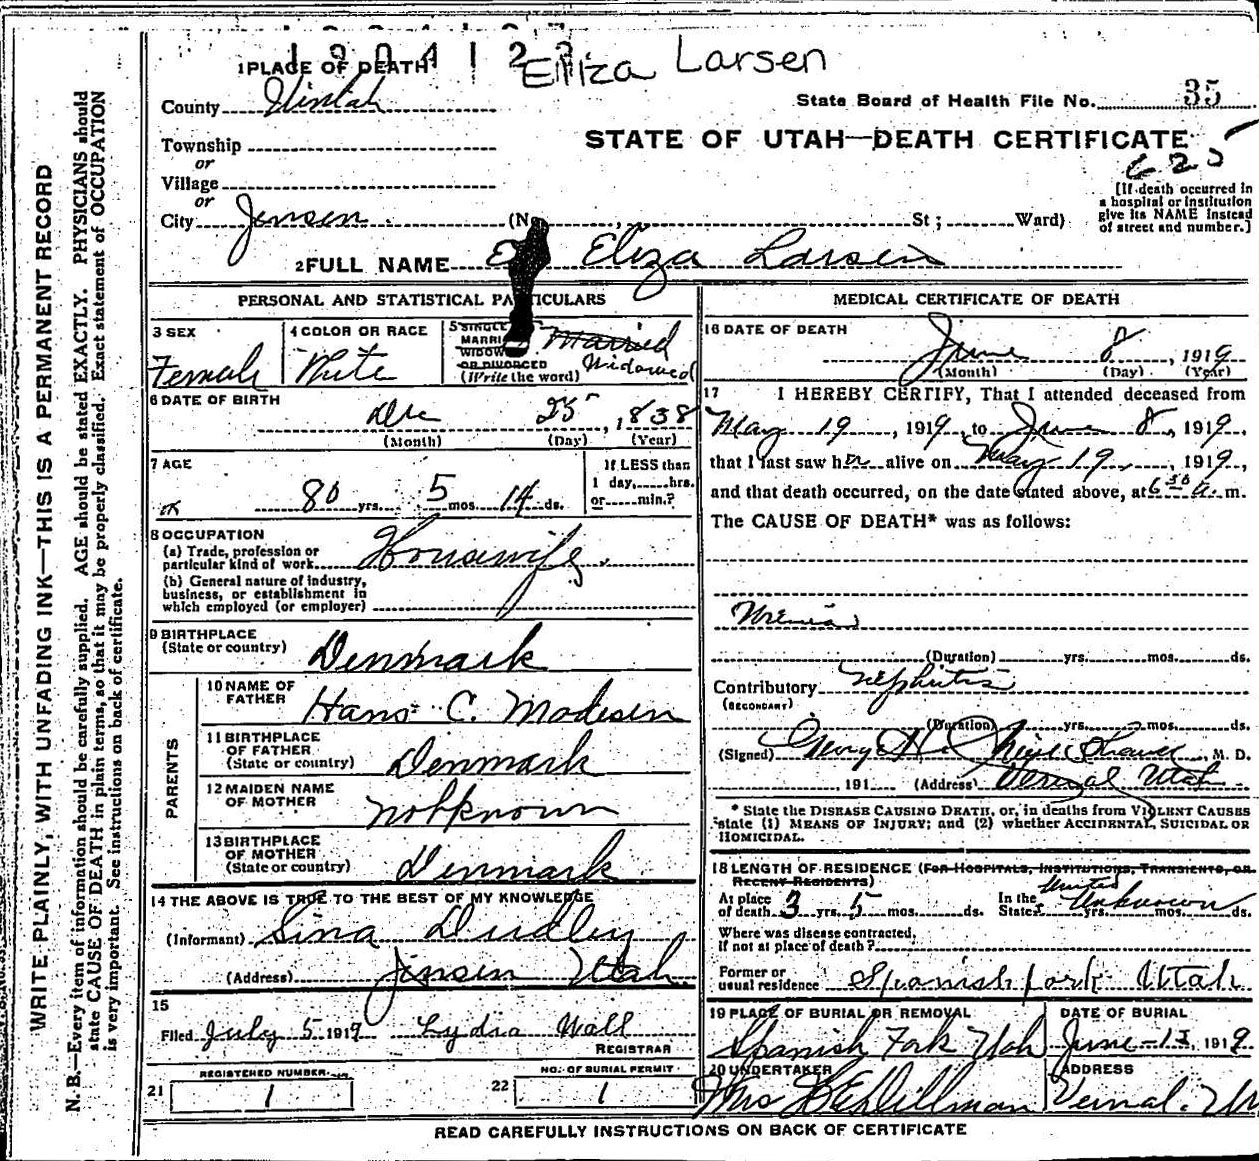 Eliza Larsen
1 PLACE OF DEATH
County Uintah
State Board of Health File No. 35
STATE OF UTAH—DEATH CERTIFICATE
625
Township
or
Village
or
City Jensen
St; Ward)
[If death occurred in
a hospital or institution
give its NAME instead
of street and number.]
2 FULL NAME Eliza Larsen
PERSONAL AND STATISTICAL PARTICULARS
3 SEX
Female
4 COLOR OR RACE
White
5 SINGLE
MARRIED
WIDOWED
OR DIVORCED
(Write the word)
Married
Widowed
6 DATE OF BIRTH
Dec 25, 1838
(Month) (Day) (Year)
7 AGE
80 yrs. 5 mos. 14 ds.
If LESS than
1 day, hrs.
or min.?
8 OCCUPATION
(a) Trade, profession or
particular kind of work Housewife
(b) General nature of industry,
business, or establishment in
which employed (or employer)
9 BIRTHPLACE
(State or country) Denmark
PARENTS
10 NAME OF
FATHER Hans C. Madesen
11 BIRTHPLACE
OF FATHER
(State or country) Denmark
12 MAIDEN NAME
OF MOTHER not known
13 BIRTHPLACE
OF MOTHER
(State or country) Denmark
14 THE ABOVE IS TRUE TO THE BEST OF MY KNOWLEDGE
(Informant) Sina Dudley
(Address) Jensen Utah
15
Filed July 5 1919 Lydia Wall
REGISTRAR
21 REGISTERED NUMBER
1
22 NO. OF BURIAL PERMIT
1
MEDICAL CERTIFICATE OF DEATH
16 DATE OF DEATH
June 8, 1919
(Month) (Day) (Year)
17 I HEREBY CERTIFY, That I attended deceased from
May 19, 1919, to June 8, 1919,
that I last saw her alive on May 19, 1919,
and that death occurred, on the date stated above, at 6 30 a. m.
The CAUSE OF DEATH* was as follows:
Uremia
(Duration) yrs. mos. ds.
Contributory nephritis
(SECONDARY)
(Duration) yrs. mos. ds.
(Signed) M. D.
191 (Address) Vernal Utah
* State the DISEASE CAUSING DEATH, or, in deaths from VIOLENT CAUSES
state (1) MEANS OF INJURY; and (2) whether ACCIDENTAL, SUICIDAL OR
HOMICIDAL.
18 LENGTH OF RESIDENCE (FOR HOSPITALS, INSTITUTIONS, TRANSIENTS, OR
RECENT RESIDENTS)
At place
of death 3 yrs. 5 mos. ds.
In the United
States yrs. Unknown mos. ds.
Where was disease contracted,
if not at place of death?
Former or
usual residence Spanish fork Utah
19 PLACE OF BURIAL OR REMOVAL
Spanish Fork Utah
DATE OF BURIAL
June 1919
20 UNDERTAKER
Dillman
ADDRESS
Vernal. Ut
READ CAREFULLY INSTRUCTIONS ON BACK OF CERTIFICATE
WRITE PLAINLY, WITH UNFADING INK—THIS IS A PERMANENT RECORD
N. B.—Every item of information should be carefully supplied. AGE should be stated EXACTLY. PHYSICIANS should
state CAUSE OF DEATH in plain terms, so that it may be properly classified. Exact statement of OCCUPATION
is very important. See instructions on back of certificate.